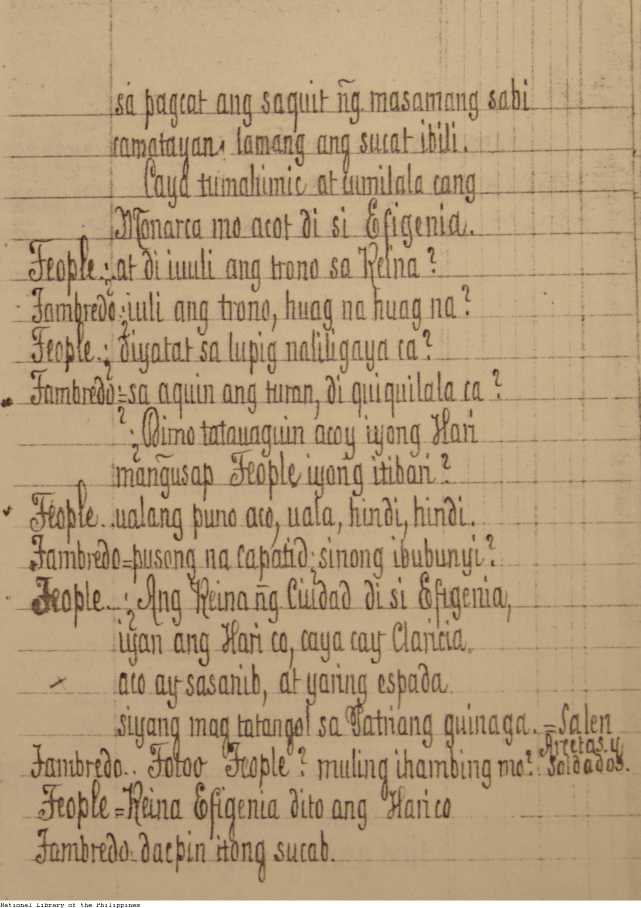 sa pagcat ang saquit ñg masamang sabi
camatayan lamang ang sucat ibili.
Caya tumahimic at cumilala cang
Monarca mo acot di si Efigenia.
Feople.; at di iuuli ang trono sa Reina?
Fambredo; iuli ang trono, huag na huag na?
Feople.; diyatat sa lupig naliligaya ca?
Fambredo:=sa aquin ang turan, di quiquilala ca?
?; Dimo tatauaguin acoy iyong Hari
mañgusap Feople iyong itibari?
Feople.. ualang puno aco, uala, hindi, hindi.
Fambredo=pusong na capatid; sinong ibubunyi?
Feople..; Ang Reina ñg Ciudad di si Efigenia,
iyan ang Hari co, caya cay Claricia.
aco ay sasanib, at yaring espada.
siyang mag tatangol sa Patriang guinaga.=Salen
Arcetas. y
Fambredo.. Fotoo Feople? muling ihambing mo? Soldados.
Feople=Reina Efigenia dito ang Hari co
Fambredo. dacpin itong sucab.
National Library of the Philippines